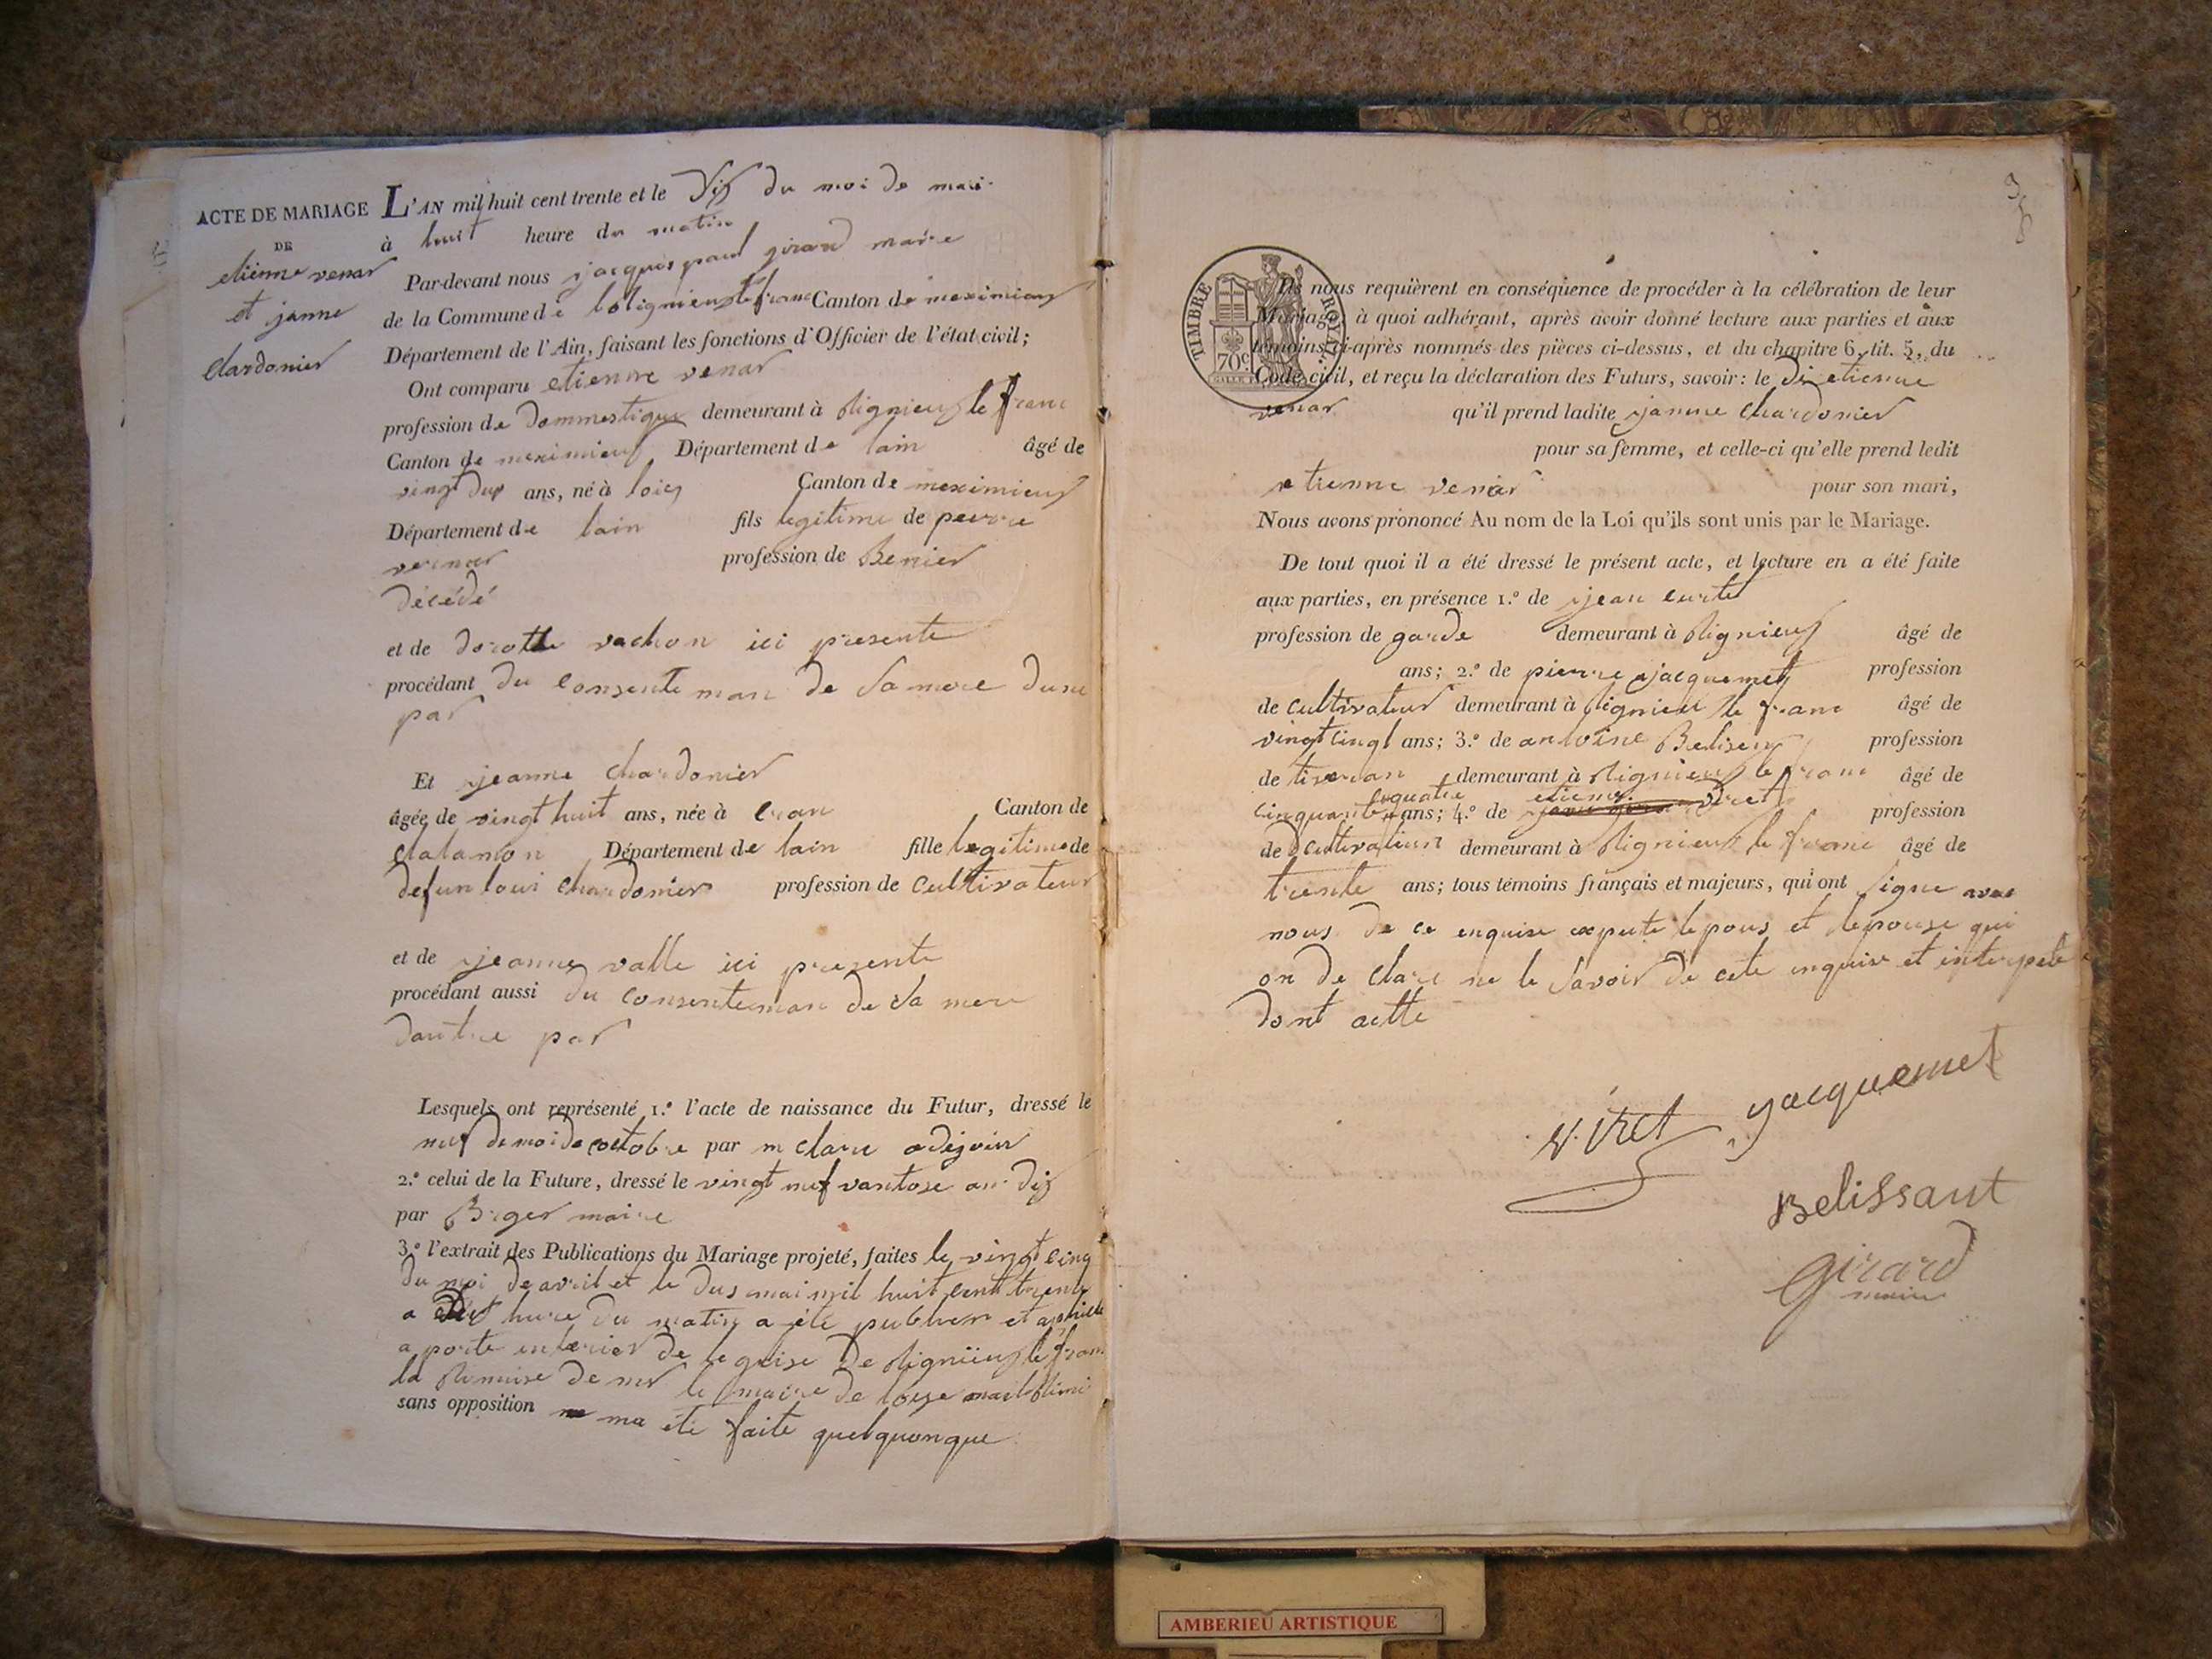 ACTE DE MARIAGE
DE
etienne venar
et janne
chardonier
L'AN mil huit cent trente et le six du moi de mai
à huit heure du matin
Par-devant nous jacques paul girard maire
de la Commune de boligneux le franc Canton de meximieux
Département de l'Ain, faisant les fonctions d'Officier de l'état civil;
Ont comparu etienne venar
profession de dommestique demeurant à blignieux le franc
Canton de meximieux Département de lain âgé de
vingt dux ans, né à loies Canton de meximieux
Département de lain fils legitime de pierre
venar profession de Benier
décédé
et de dorotte vachon ici presente
procédant du consenteman de sa mere dune
par
Et jeanne chardonier
âgée de vingt huit ans, née à cran Canton de
chalamon Département de lain fille legitime de
defun loui chardonier profession de cultivateur
et de jeanne valle ici presente
procédant aussi du consenteman de sa mere
dautre par
Lesquels ont représenté 1.º l'acte de naissance du Futur, dressé le
neuf de moi de octobre par m clare adejoin
2.º celui de la Future, dressé le vingt neuf vantose an dix
par Beger maire
3.º l'extrait des Publications du Mariage projeté, faites le vingt cinq
du moi de avril et le dus mai mil huit cent trente
a hure du matin a été publier et aphiche
a porte enterier de leglise de blignieux le franc
la de mr le maire de loye
sans opposition ma été faite quelquonque
TIMBRE ROYAL
70c
Ils nous requièrent en conséquence de procéder à la célébration de leur
Mariage, à quoi adhérant, après avoir donné lecture aux parties et aux
témoins ci-après nommés des pièces ci-dessus, et du chapitre 6, tit. 5, du
Code civil, et reçu la déclaration des Futurs, savoir: le di etienne
venar qu'il prend ladite janne chardonier
pour sa femme, et celle-ci qu'elle prend ledit
etienne venar pour son mari,
Nous avons prononcé Au nom de la Loi qu'ils sont unis par le Mariage.
De tout quoi il a été dressé le présent acte, et lecture en a été faite
aux parties, en présence 1.º de jean curtet
profession de garde demeurant à blignieux âgé de
ans; 2.º de pierre jacquemet profession
de cultivateur demeurant à blignieu le franc âgé de
vingt cinql ans; 3.º de antoine Belisen profession
de tiseran demeurant à blignieux le franc âgé de
cinquante quatre ans; 4.º de etienne viret profession
de cultivatieur demeurant à blignieux le franc âgé de
trente ans; tous témoins français et majeurs, qui ont signe avec
nous de ce enquise expeté lepous et lepouse qui
on de clare ne le savoir de cete enquise et interpelé
dont actte
viret
jacquemet
Belissant
girard
maire
AMBERIEU ARTISTIQUE